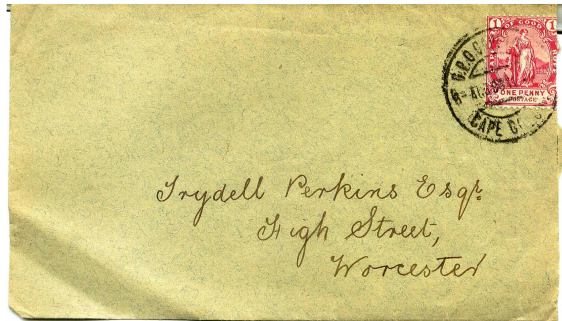 1 1
OF GOOD
ONE PENNY
POSTAGE
G.P.O.
CAPE
Trydell Perkins Esqr.
High Street,
Worcester